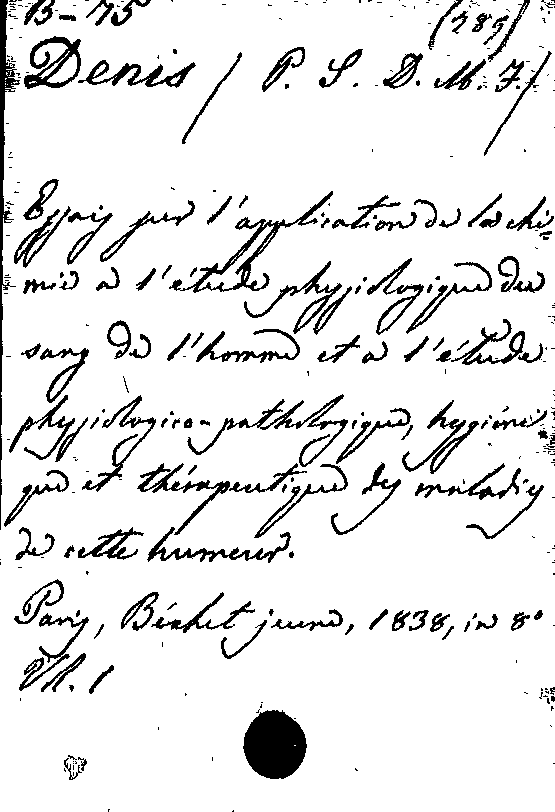 B-75 (289)
Denis / P. S. D. M. F./
Essais sur l'application de la chi=
mie a l'étude physiologique du
sang de l'homme et a l'étude
physiologico-pathologique, hygiéni
que et thérapeutique des maladies
de cette humeur.
Paris, Béchet jeune, 1838, in 8°
Vl. 1